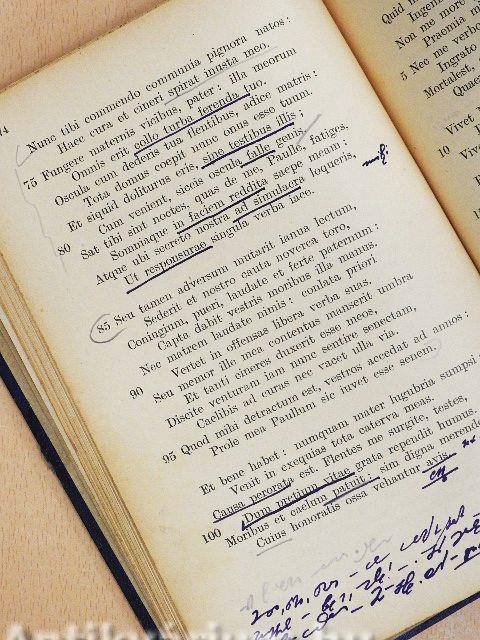 74
Nunc tibi commendo communia pignora natos:
Haec cura et cineri spirat inusta meo.
75 Fungere maternis vicibus, pater: illa meorum
Omnis erit collo turba ferenda tuo.
Oscula cum dederis tua flentibus, adice matris:
Tota domus coepit nunc onus esse tuum.
Et siquid doliturus eris, sine testibus illis;
Cum venient, siccis oscula falle genis.
80 Sat tibi sint noctes, quas de me, Paulle, fatiges,
Somniaque in faciem reddita saepe meam:
Atque ubi secreto nostra ad simulacra loqueris,
Ut responsurae singula verba iace.
85 Seu tamen adversum mutarit ianua lectum,
Sederit et nostro cauta noverca toro,
Coniugium, pueri, laudate et ferte paternum:
Capta dabit vestris moribus illa manus.
Nec matrem laudate nimis: conlata priori
Vertet in offensas libera verba suas.
90 Seu memor ille mea contentus manserit umbra
Et tanti cineres duxerit esse meos,
Discite venturam iam nunc sentire senectam,
Caelibis ad curas nec vacet ulla via.
95 Quod mihi detractum est, vestros accedat ad annos:
Prole mea Paullum sic iuvet esse senem.
Et bene habet: numquam mater lugubria sumpsi:
Venit in exequias tota caterva meas.
Causa perorata est. Flentes me surgite, testes,
Dum pretium vitae grata rependit humus.
100 Moribus et caelum patuit: sim digna merendo
Cuius honoratis ossa vehantur avis.
Quid
Ingeni
Non me more
Praemia
5 Nec me verbo
Ingrato
Mortalest,
Quae
Vivet,
10